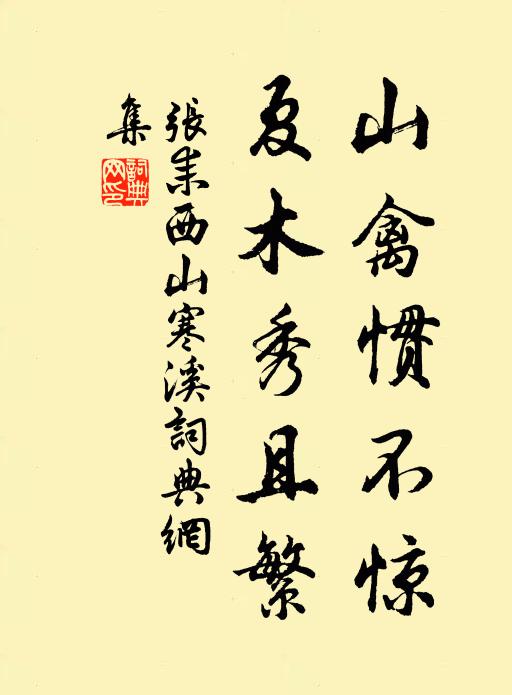 山禽惯不惊
夏木秀且繁
張耒西山寒溪詞典網
集
詞典网印